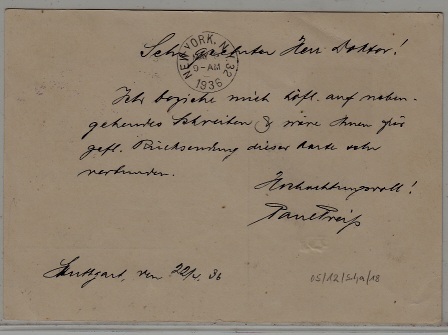 Sehr geehrter Herr Doktor!
NEW YORK, N.Y. 32
9-AM
1936
Ich beziehe mich höfl. auf neben-
gehendes Schreiben & wäre Ihnen für
gefl. Rücksendung dieser Karte sehr
verbunden.
Hochachtungsvoll!
Paul
Stuttgart, den 22/. 36
05/12/Sha/18